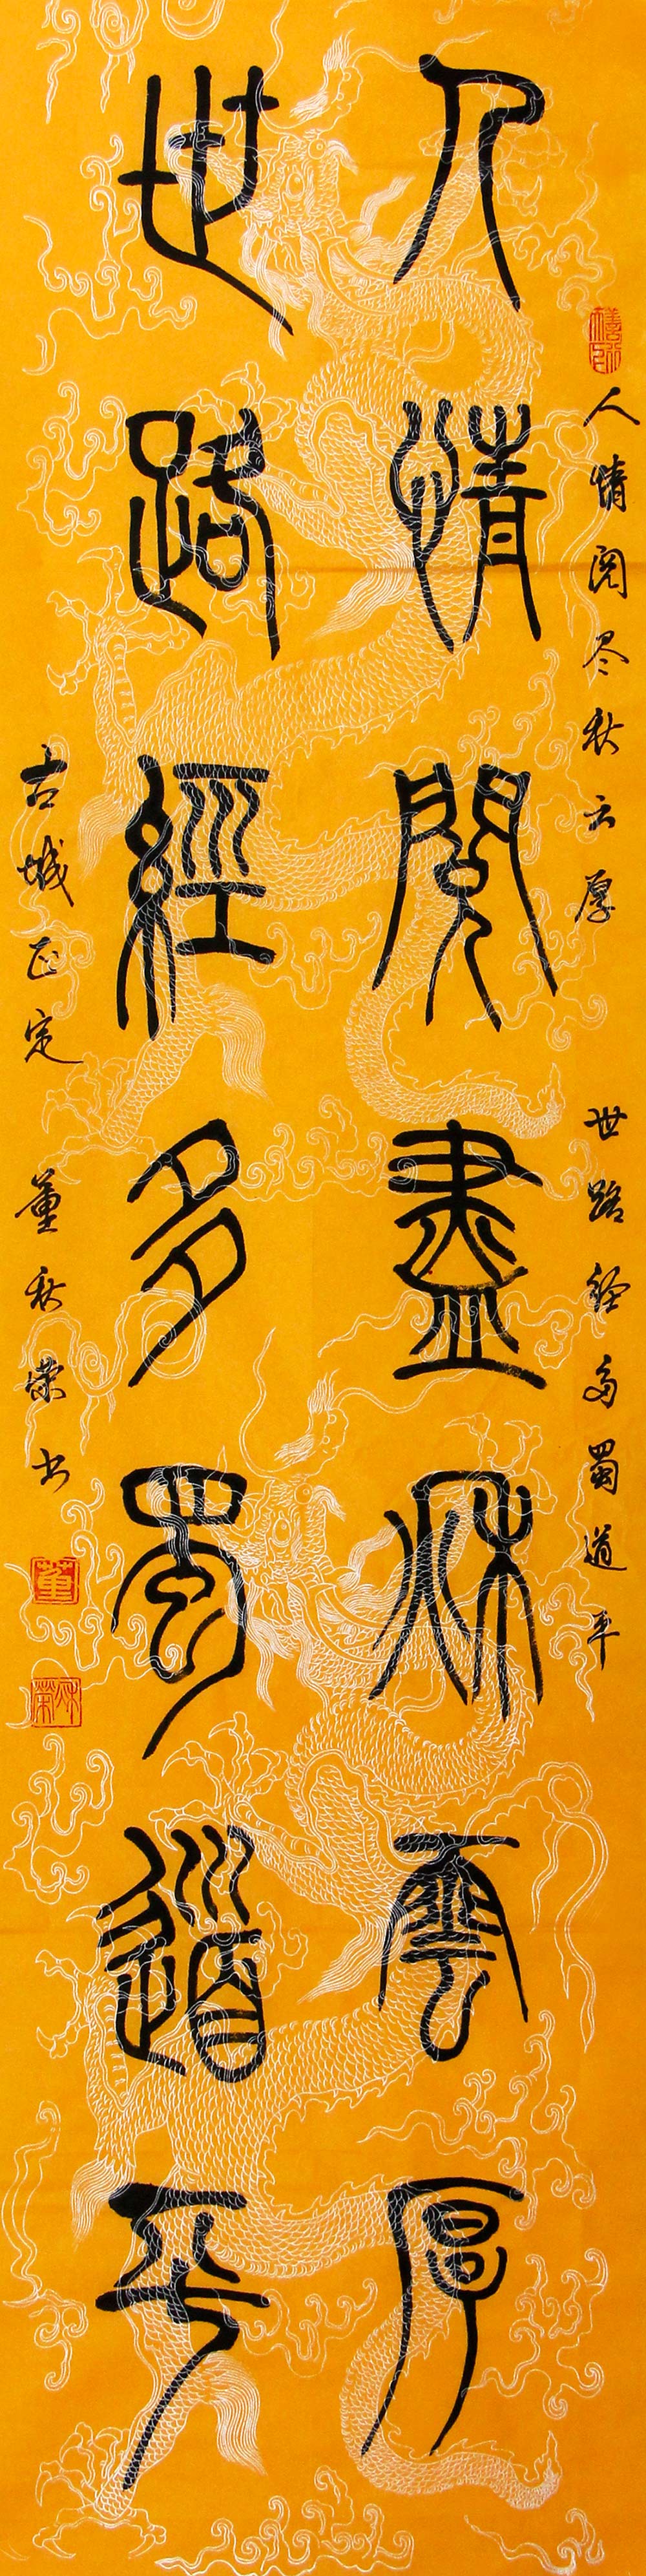 人情閱盡秋雲厚
世路經多蜀道平
人情阅尽秋云厚 世路経多蜀道平
古城正定 董秋棠书
董